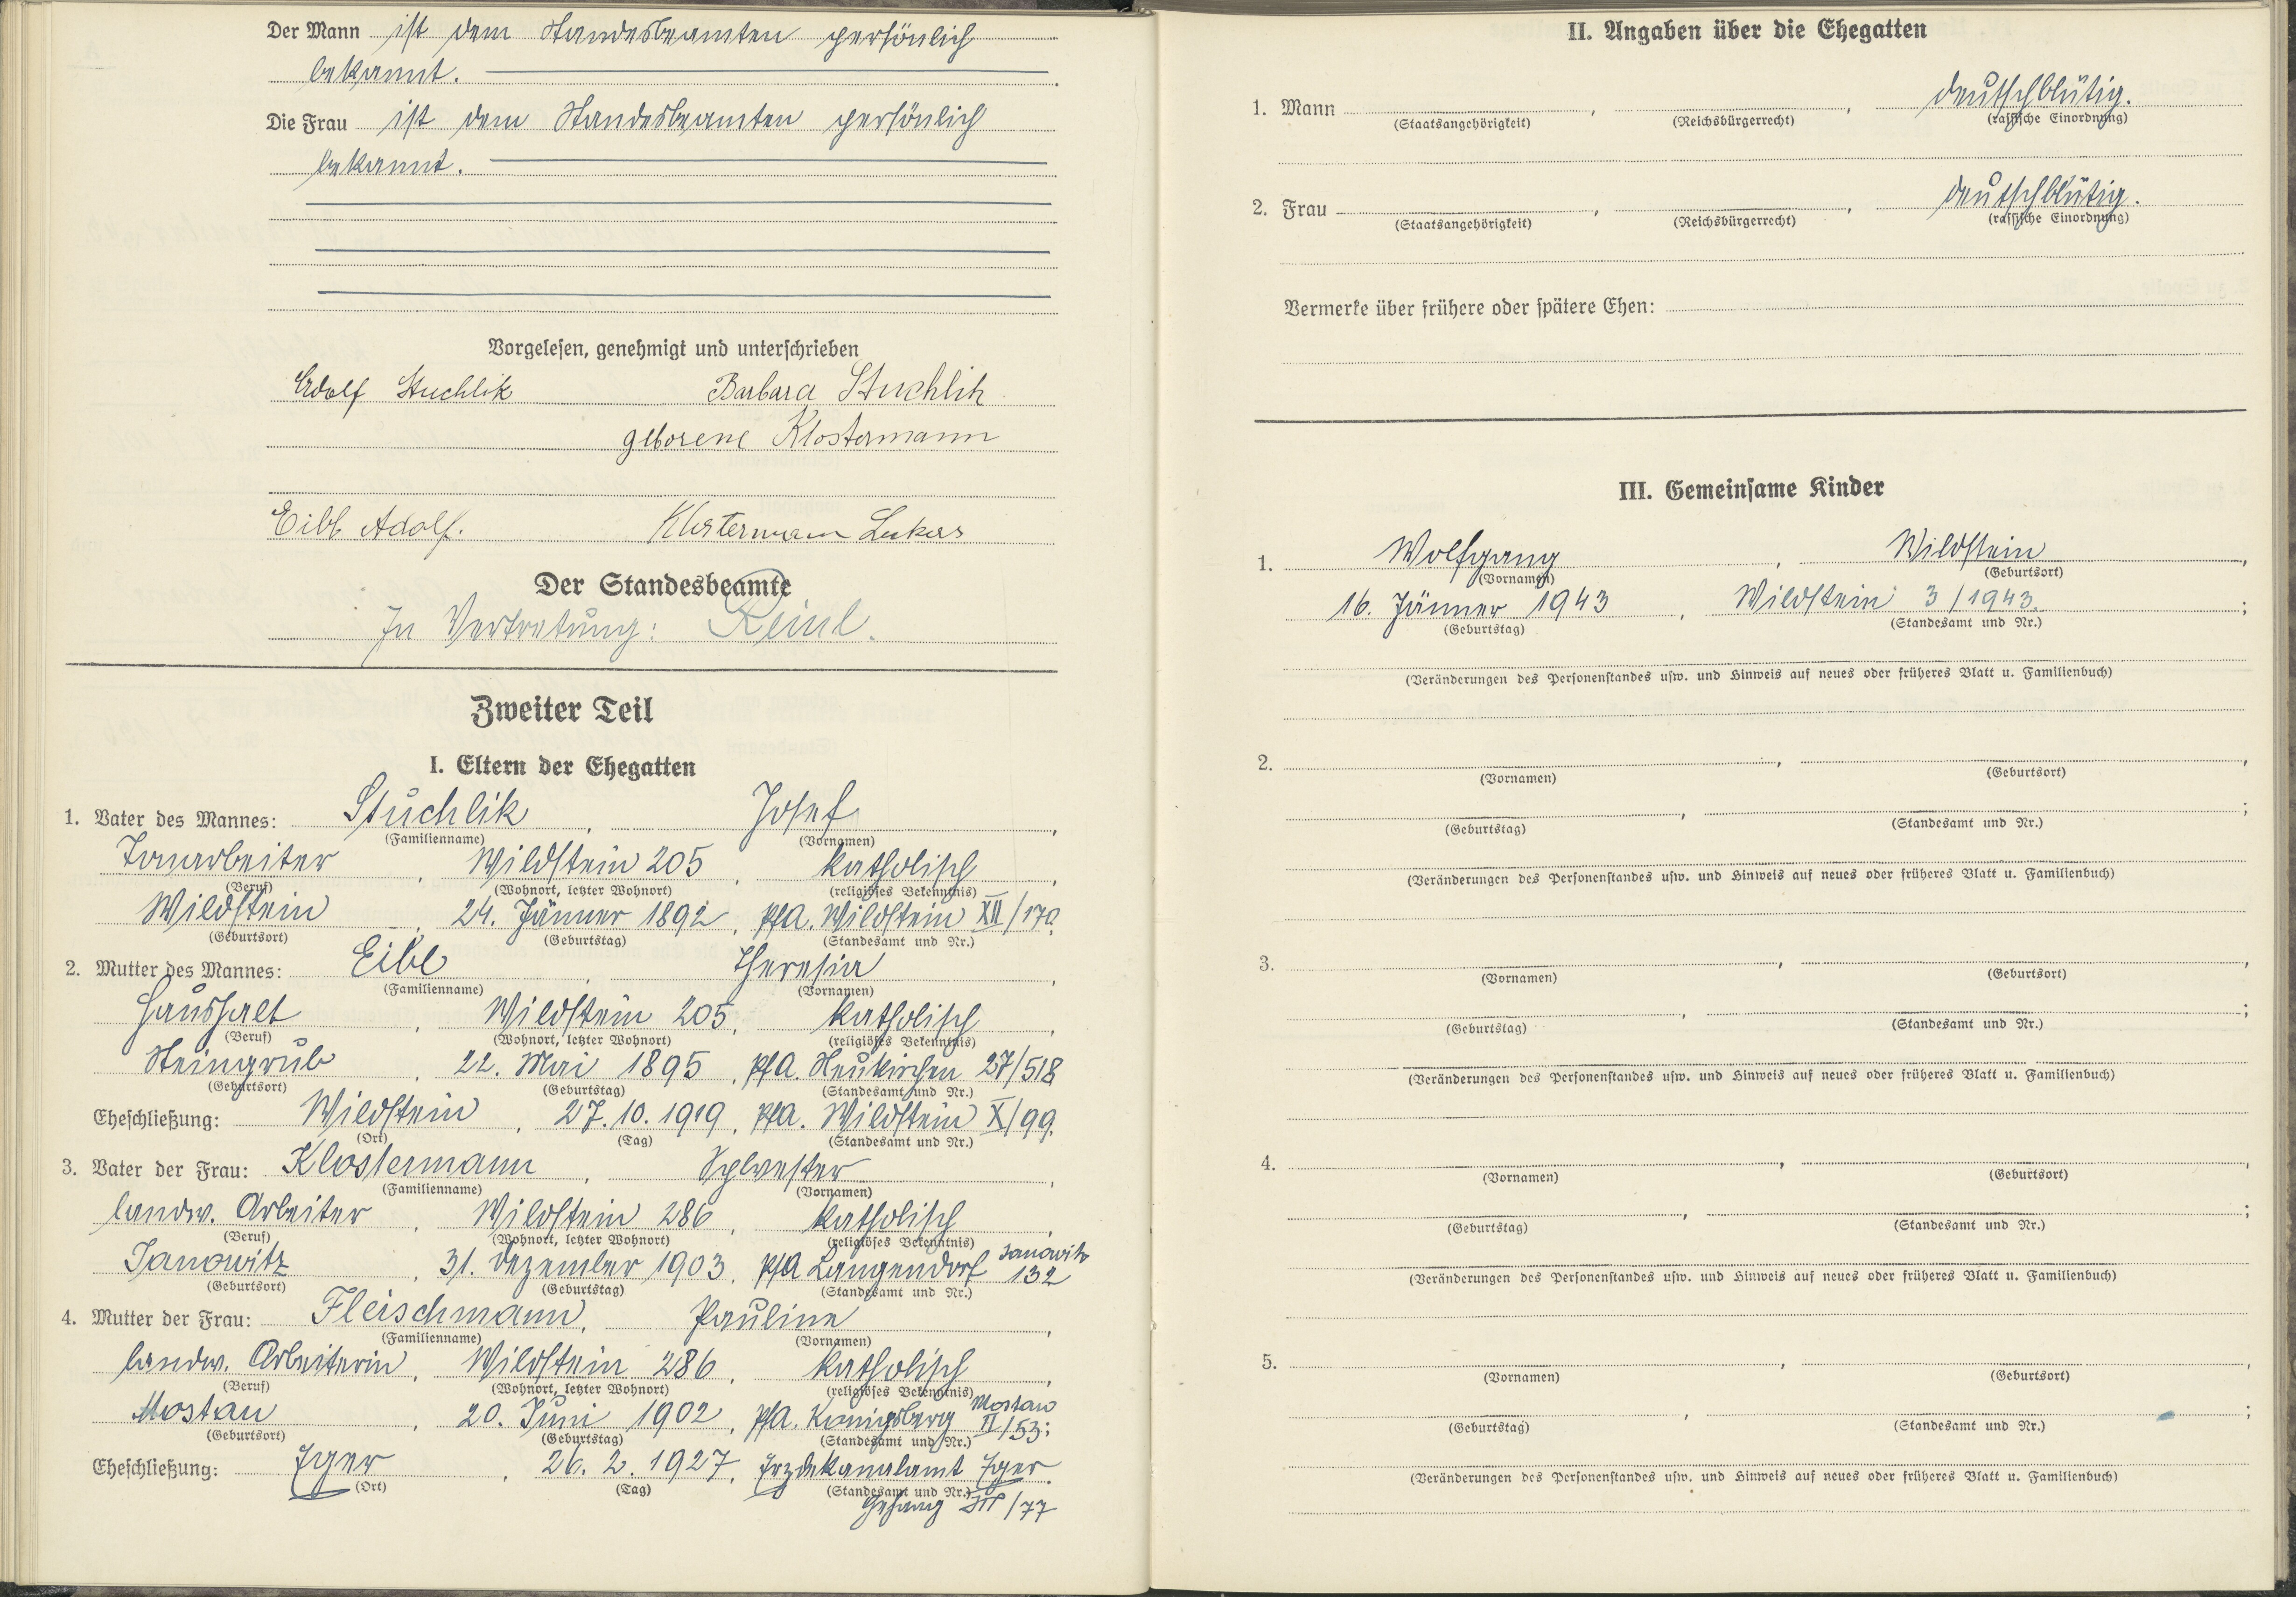 Der Mann ist dem Standesbeamten persönlich
bekannt.
Die Frau ist dem Standesbeamten persönlich
bekannt.
Vorgelesen, genehmigt und unterschrieben
Adolf Stuchlik Barbara Stuchlik
geborene Klostermann
Eibl Adolf. Klostermann Lukas
Der Standesbeamte
In Vertretung: Reinl.
Zweiter Teil
I. Eltern der Ehegatten
1. Vater des Mannes: Stuchlik, Josef,
(Familienname) (Vornamen)
Tonarbeiter, Wildstein 205, katholisch,
(Beruf) (Wohnort, letzter Wohnort) (religiöses Bekenntnis)
Wildstein, 24. Jänner 1892, PfA. Wildstein XII/170
(Geburtsort) (Geburtstag) (Standesamt und Nr.)
2. Mutter des Mannes: Eibl, Theresia,
(Familienname) (Vornamen)
Haushalt, Wildstein 205, katholisch,
(Beruf) (Wohnort, letzter Wohnort) (religiöses Bekenntnis)
Steingrub, 22. Mai 1895, PfA. Neukirchen 27/518
(Geburtsort) (Geburtstag) (Standesamt und Nr.)
Eheschließung: Wildstein, 27.10.1919, PfA. Wildstein X/99.
(Ort) (Tag) (Standesamt und Nr.)
3. Vater der Frau: Klostermann, Sylvester,
(Familienname) (Vornamen)
landw. Arbeiter, Wildstein 286, katholisch,
(Beruf) (Wohnort, letzter Wohnort) (religiöses Bekenntnis)
Janowitz, 31. Dezember 1903, PfA Langendorf Janowitz 132
(Geburtsort) (Geburtstag) (Standesamt und Nr.)
4. Mutter der Frau: Fleischmann, Pauline,
(Familienname) (Vornamen)
landw. Arbeiterin, Wildstein 286, katholisch,
(Beruf) (Wohnort, letzter Wohnort) (religiöses Bekenntnis)
Mostau, 20. Juni 1902, PfA. Königsberg Mostau II/53;
(Geburtsort) (Geburtstag) (Standesamt und Nr.)
Eheschließung: Eger, 26.2.1927, Erzdekanalamt Eger.
(Ort) (Tag) (Standesamt und Nr.)
III/77
II. Angaben über die Ehegatten
1. Mann , , deutschblütig.
(Staatsangehörigkeit) (Reichsbürgerrecht) (rassische Einordnung)
2. Frau , , deutschblütig.
(Staatsangehörigkeit) (Reichsbürgerrecht) (rassische Einordnung)
Vermerke über frühere oder spätere Ehen:
III. Gemeinsame Kinder
1. Wolfgang, Wildstein,
(Vornamen) (Geburtsort)
16. Jänner 1943, Wildstein 3/1943.;
(Geburtstag) (Standesamt und Nr.)
(Veränderungen des Personenstandes usw. und Hinweis auf neues oder früheres Blatt u. Familienbuch)
2. , ,
(Vornamen) (Geburtsort)
, ;
(Geburtstag) (Standesamt und Nr.)
(Veränderungen des Personenstandes usw. und Hinweis auf neues oder früheres Blatt u. Familienbuch)
3. , ,
(Vornamen) (Geburtsort)
, ;
(Geburtstag) (Standesamt und Nr.)
(Veränderungen des Personenstandes usw. und Hinweis auf neues oder früheres Blatt u. Familienbuch)
4. , ,
(Vornamen) (Geburtsort)
, ;
(Geburtstag) (Standesamt und Nr.)
(Veränderungen des Personenstandes usw. und Hinweis auf neues oder früheres Blatt u. Familienbuch)
5. , ,
(Vornamen) (Geburtsort)
, ;
(Geburtstag) (Standesamt und Nr.)
(Veränderungen des Personenstandes usw. und Hinweis auf neues oder früheres Blatt u. Familienbuch)